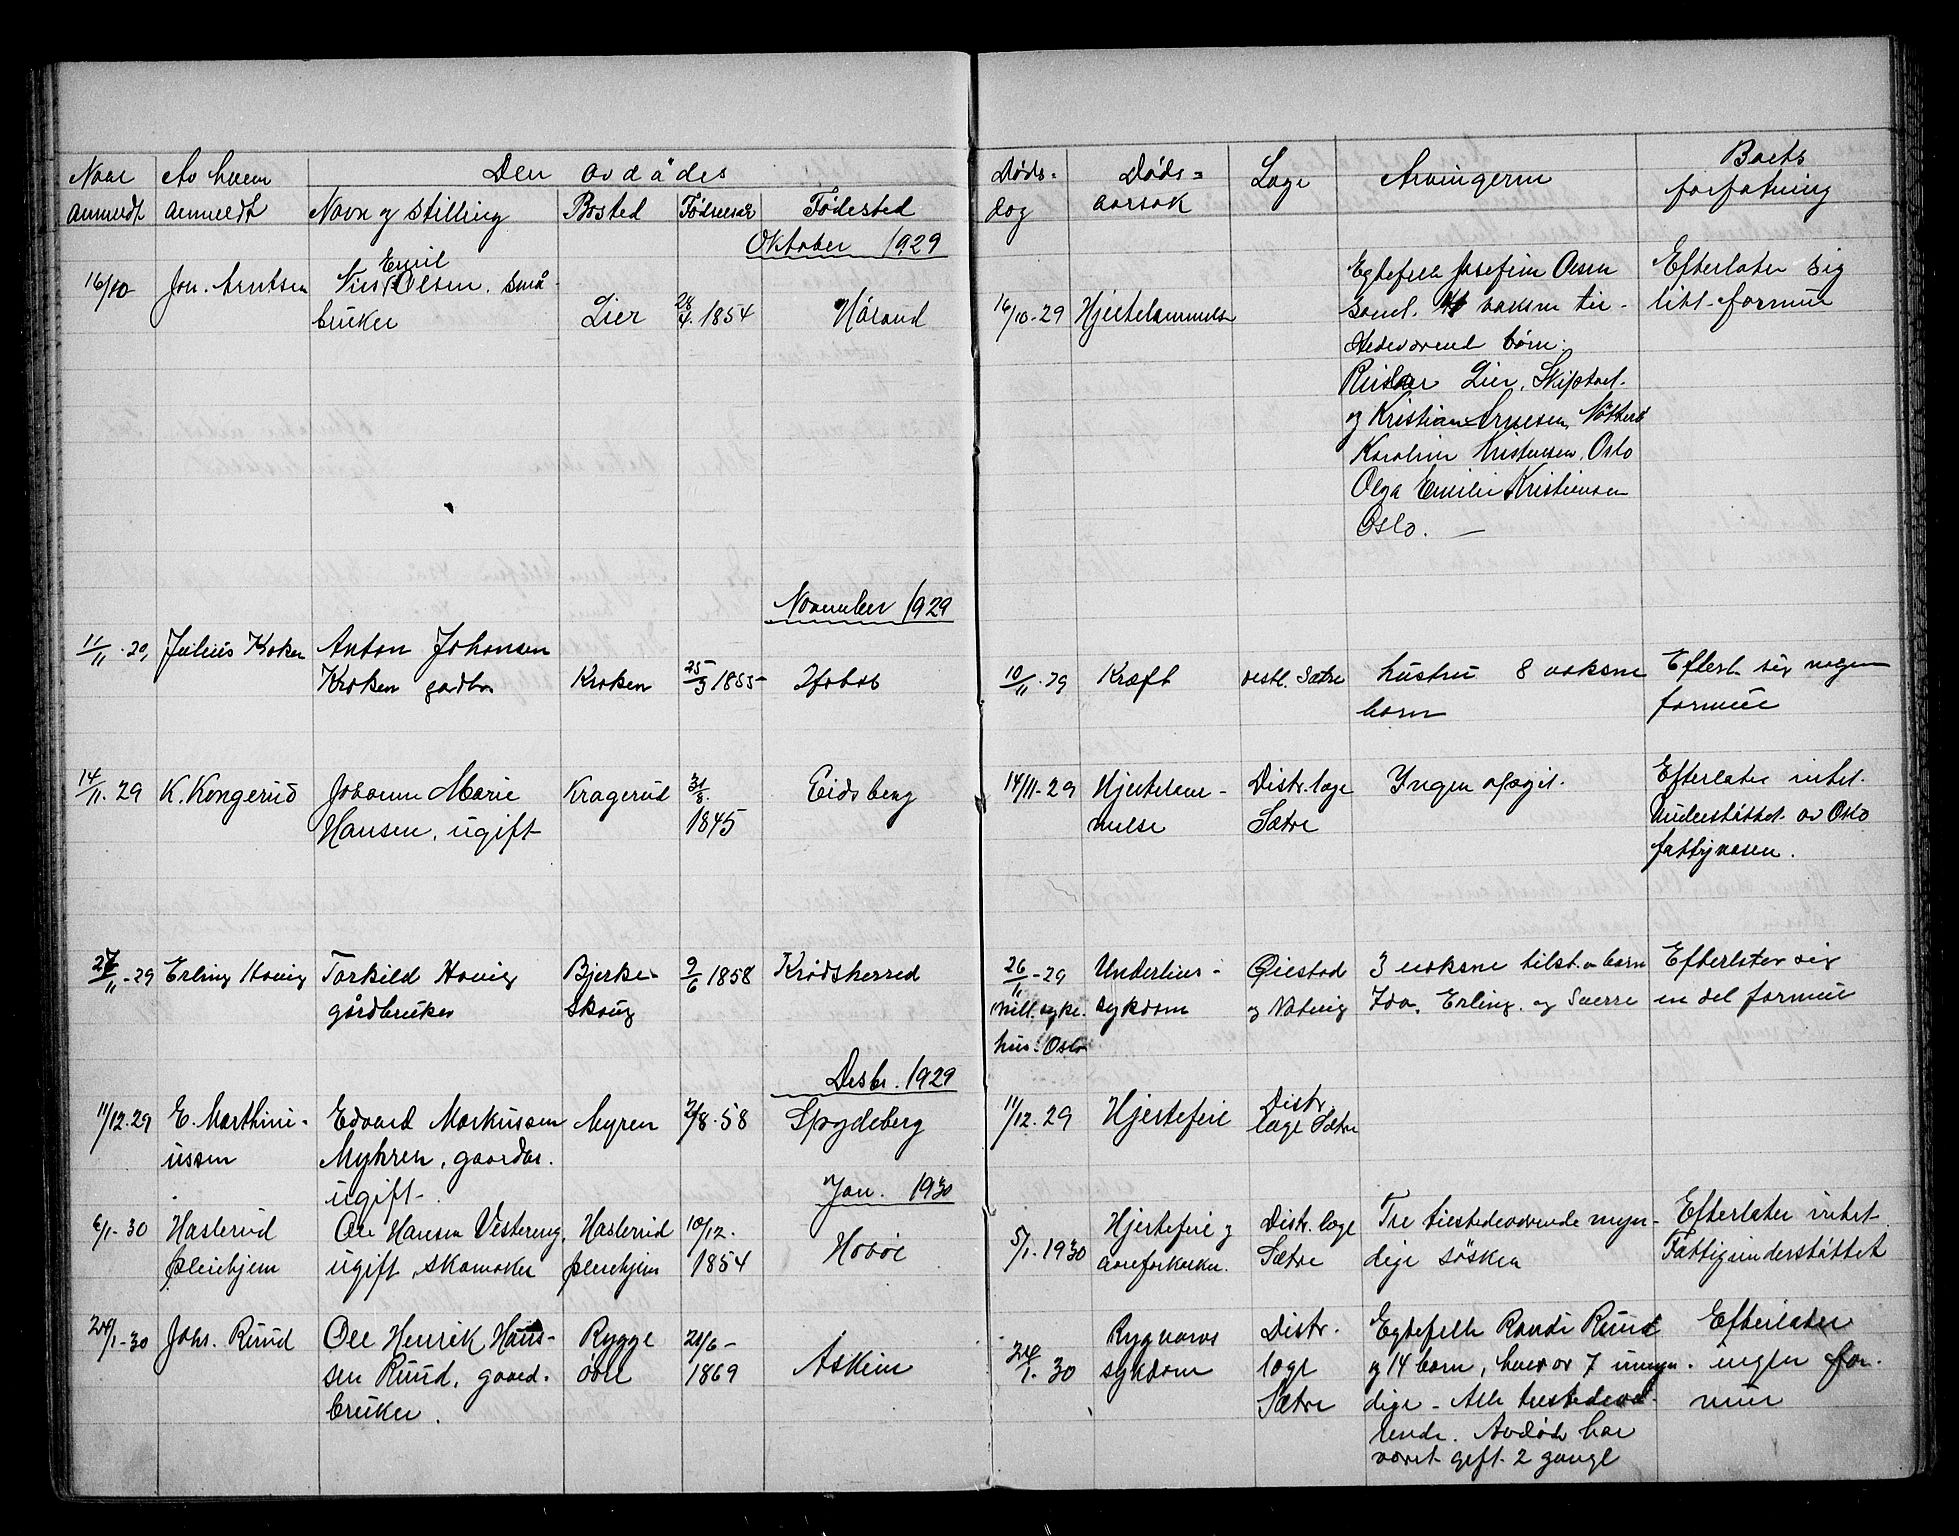 Naar Av hvem Den avdødes Døds= Døds= Læge Arvingerne Boets
anmeldt anmeldt Navn og stilling Bosted Fødselsår Fødested dag aarsak forfatning
Oktober 1929
16/10 Joh. Arntsen Nils Emil Olsen, små-
bruker Lier 28/4 1854 Håland 16/10-29 Hjertelammelse
Egtefelle Josefine Olsen
saml. 4 voksne til-
stedeværende børn:
Lier, Skiptvet
og Kristian Arnesen, Nøtterø
Karoline Kristensen, Oslo
Olga Emilie Kristiansen
Oslo. —
Efterlater sig
litt formue
November 1929
11/11-29 Julius Kroken Anton Johansen
Kroken gardbr Kroken 25/3 1855 Hobøl 10/11-29 Kræft vestl. Sætre hustru 8 voksne
barn
Efterl. sig nogen
formue
14/11-29 K. Kongerud Johanne Marie
Hansen, ugift Kragerud 31/8 1845 Eidsberg 14/11-29 Hjertelam-
melse Distr.læge
Sætre Ingen opgit.
Efterlater intet.
Understøttet av Oslo
fattigvæsen.
27/11-29 Erling Hovig Torkild Hovig
gårdbruker Bjerke-
skoug 9/6 1858 Krødsherred 26/11-29
Mill. syke-
hus. Oslo Underlivs-
sykdom Øiestad
og 3 voksne tilst.v. barn
Ida, Erling og Sverre
Efterlater sig
en del formue
Desbr. 1929
11/12.29 E. Marthini-
ussen Edvard Markussen
Myhren, gaardbr.
ugift Myren 2/8-58 Spydeberg 11/12.29 Hjertefeil Distr.
læge Sætre
Jan. 1930
6/1-30 Haslerud
pleiehjem Ole Hansen Vestereng,
ugift, skomaker Haslerud
pleiehjem 10/12.
1854 Hobøl 5/1.1930 Hjertefeil og
aareforkalkn. Distr.læge
Sætre Tre tilstedeværende myn-
dige søsken
Efterlater intet.
Fattigunderstøttet
24/1-30 Johs. Ruud Ole Henrik Hans-
sen Ruud, gaard-
bruker. Rygge
øvre 21/6-
1869 Askim 24/1.30 Rygmarvs
sykdom Distr.
læge
Sætre Egtefelle Randi Ruud
og 14 barn, hvorav 7 umyn-
dige - Alle tilstedevæ-
rende. Avdøde har
været gift 2 gange
Efterlater
ingen for-
mue